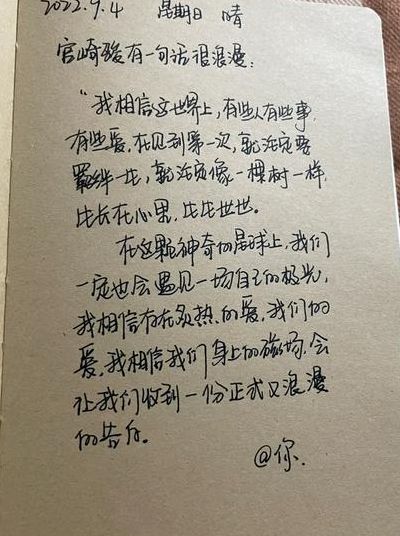 2022.9.4 星期日 晴
宫崎骏有一句话很浪漫:
“我相信这世界上,有些人有些事,
有些爱,在见到第一次,就注定要
羁绊一生,就注定像一棵树一样,
生长在心里,生生世世。
在这颗神奇的星球上,我们
一定也会遇见一场自己的极光,
我相信存在炙热的爱,我们的
爱,我相信我们身上的磁场,会
让我们收到一份正式又浪漫
的告白。
@你.